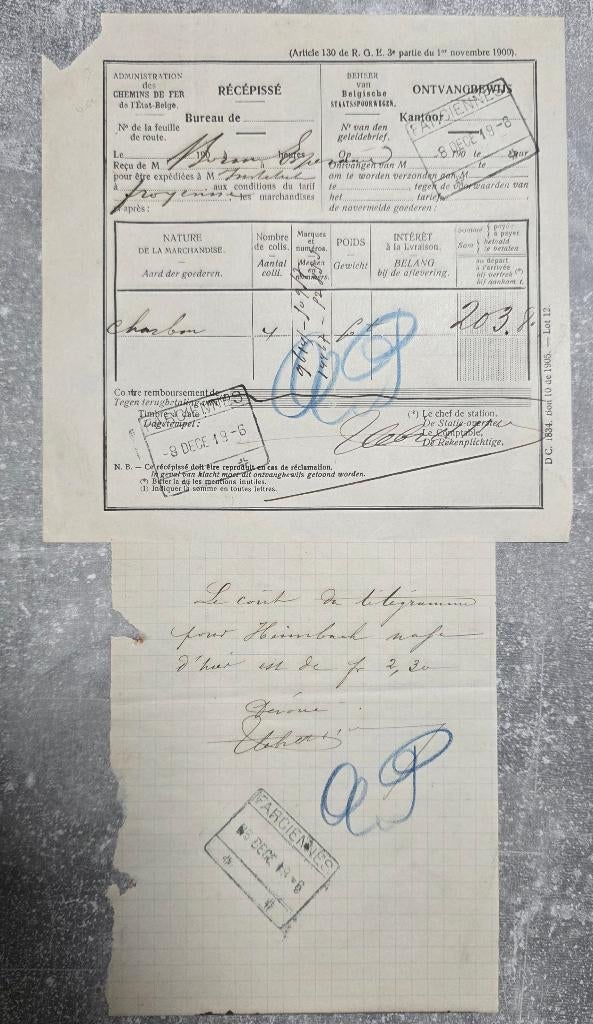 (Article 130 de R. G. E. 3e partie du 1er novembre 1900).
ADMINISTRATION
des
CHEMINS DE FER
de l'État-Belge.
RÉCÉPISSÉ
Bureau de
No de la feuille
de route.
Le 190 à heures
Reçu de M
pour être expédiées à M
à aux conditions du tarif
les marchandises
ci-après :
BEHEER
van
Belgische
STAATSSPOORWEGEN.
ONTVANGBEWIJS
Kantoor
Nr van den
geleidebrief.
Op 190 te uur
Ontvangen van M te
om te worden verzonden aan M
te tegen de voorwaarden van
het tarief
de navermelde goederen :
FARCIENNES
-8 DECE 19-6
NATURE
DE LA MARCHANDISE.
Aard der goederen.
Nombre
de colis.
Aantal
colli.
Marques
et
numéros.
Merken
en
nummers.
POIDS
Gewicht
INTÉRÊT
à la livraison.
BELANG
bij de aflevering.
Somme payée
à payer
Som betaald
te betalen
au départ
à l'arrivée
bij vertrek (*)
bij aankomt.
Charbon
203.8
Contre remboursement de
Tegen terugbetaling van
Timbre à date :
Dagstempel :
FARCIENNES
-8 DECE 19-6
(*) Le chef de station.
De Statie-overste
Le Comptable,
De Rekenplichtige.
N. B. — Ce récépissé doit être reproduit en cas de réclamation.
In geval van klacht moet dit ontvangbewijs getoond worden.
(*) Biffer la ou les mentions inutiles.
(1) Indiquer la somme en toutes lettres.
D C. 1834. Bon 10 de 1905. — Lot 12.
Le coût du télégramme
pour Heimbach
d'hier est de fr 2,30
FARCIENNES
DECE 19-6